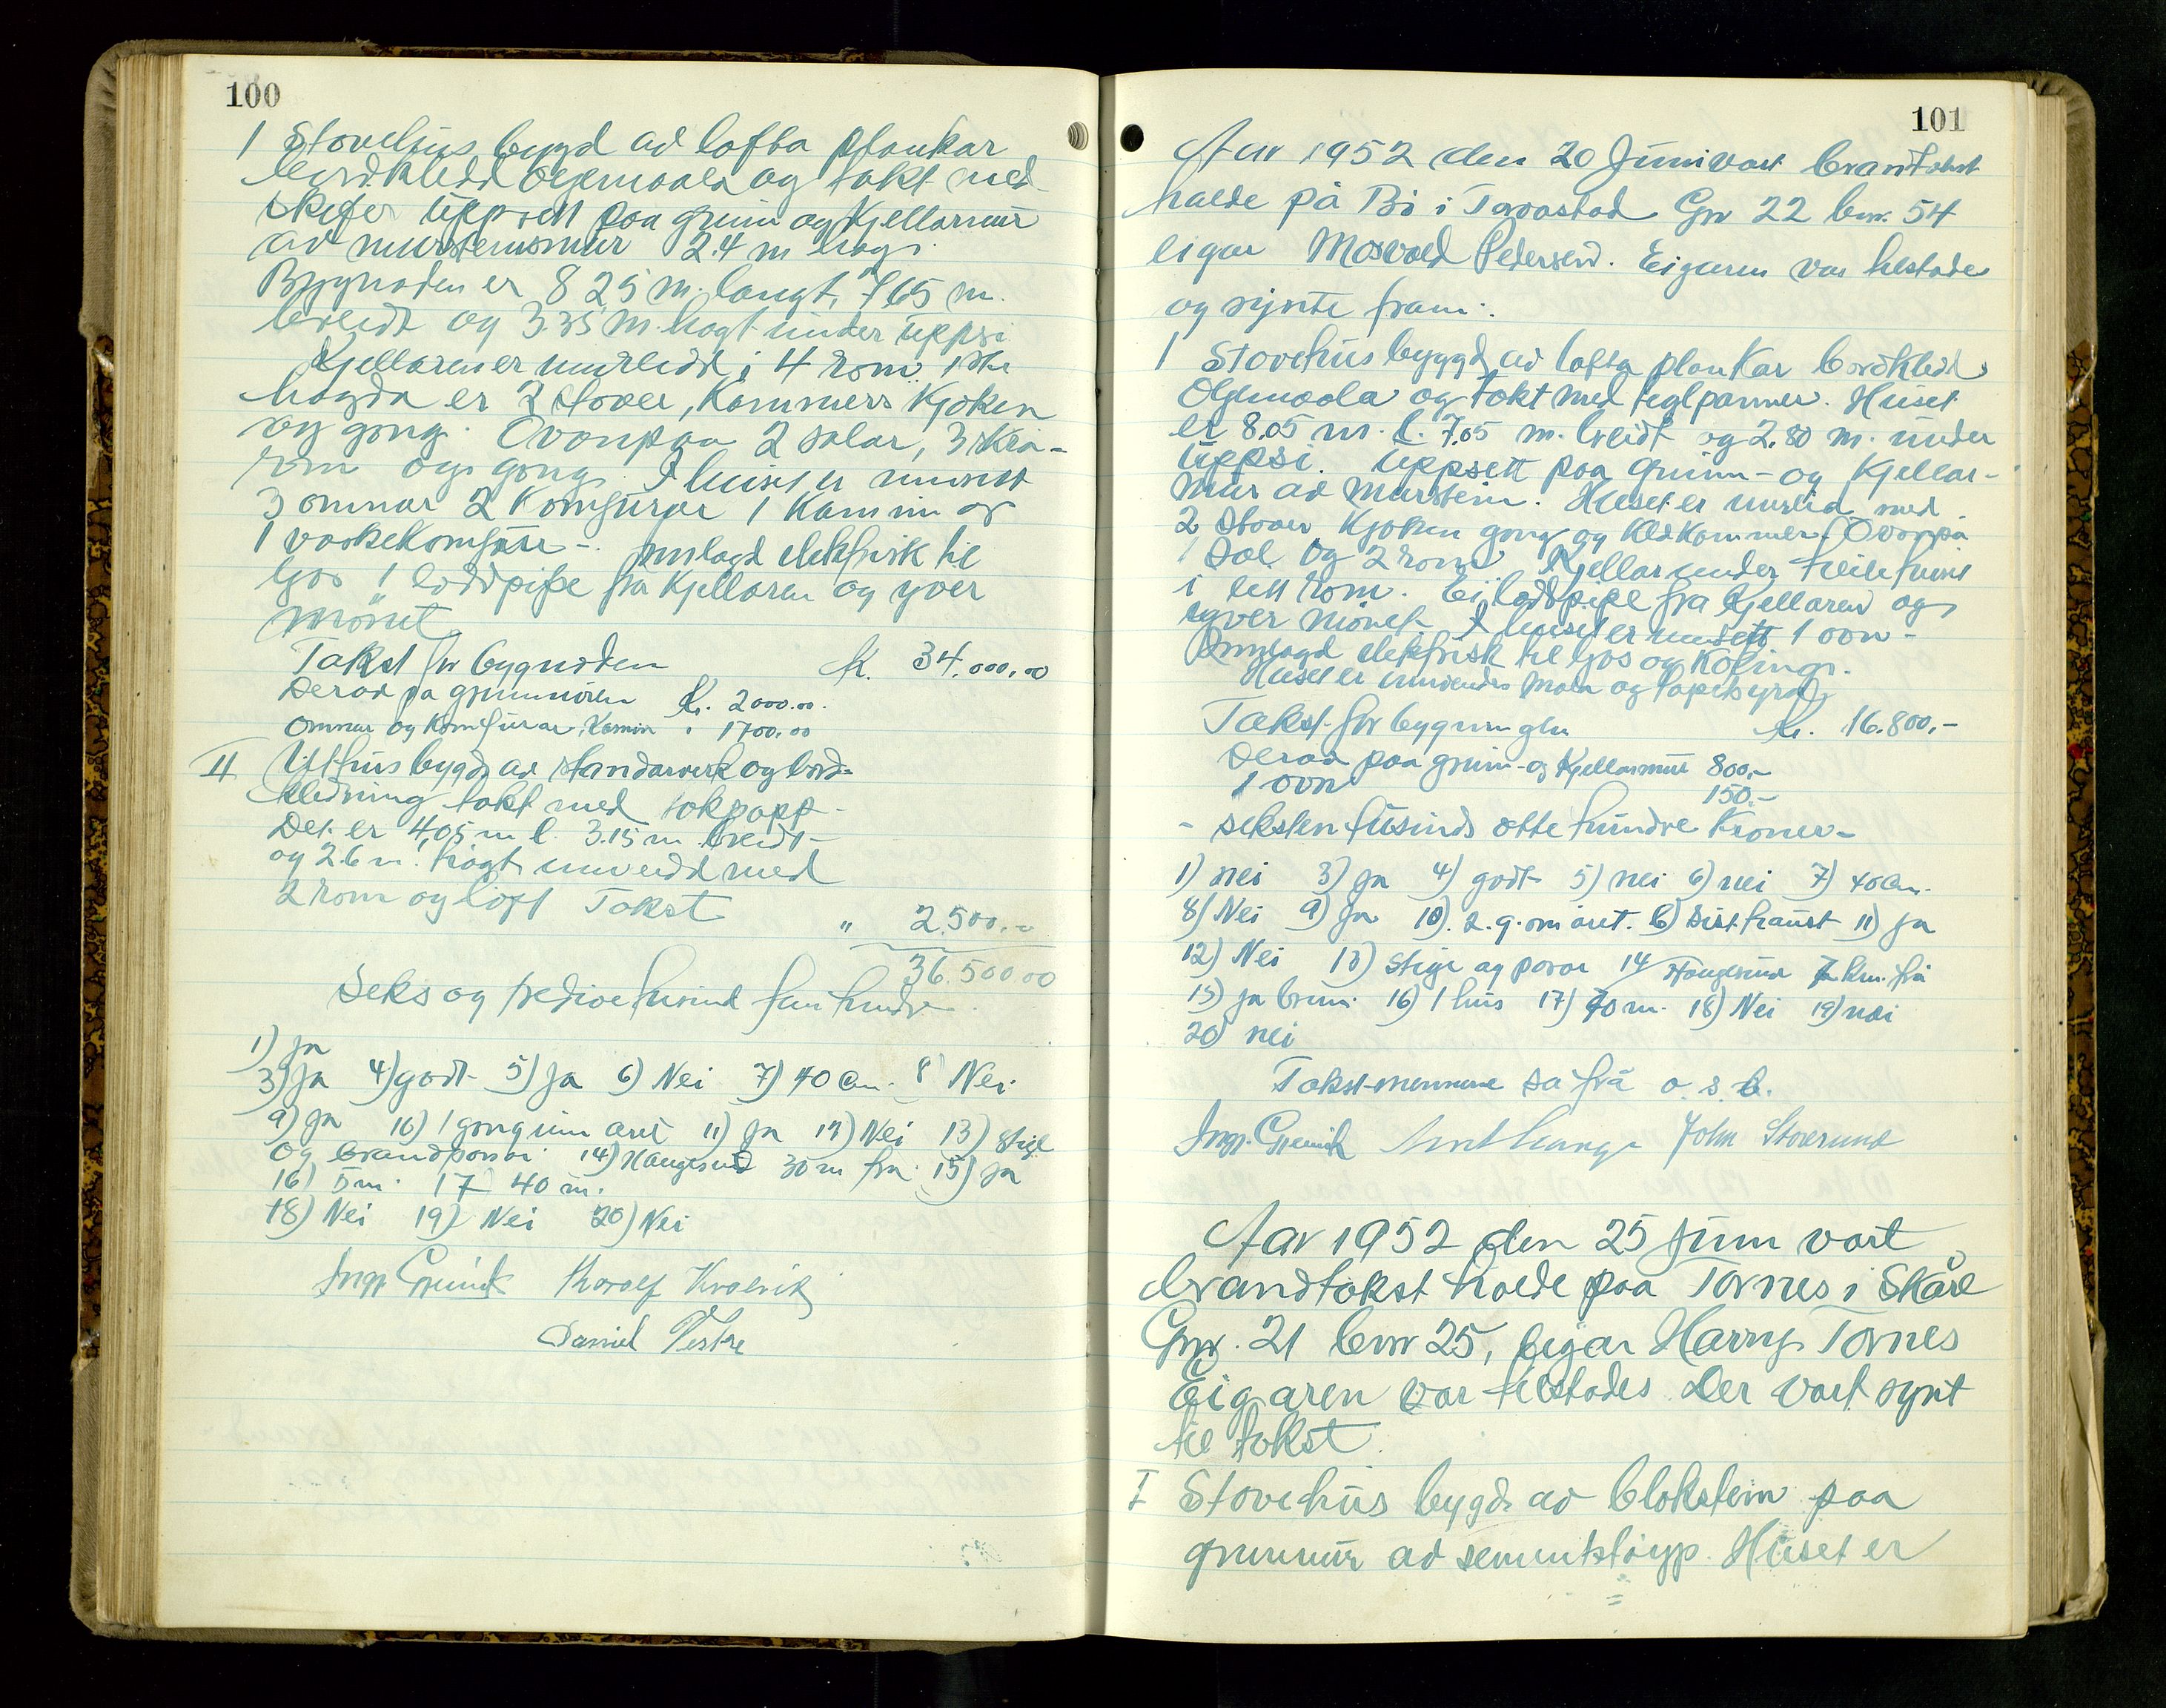 100
1 Stovehus bygd av lafta plankar
bordkledd oljemaala og takt med
skifer uppsett paa grunn og Kjellarmur
av murstensmur 2.4 m høg.
Bygnaden er 8 25 m. langt, 7 65 m.
breidt og 3.35 m. høgt under uppsi
Kjellaren er innreidd i 4 rom. 1ste
høgda er 2 stover, Kammers Kjøken
og gong. Ovanpaa 2 salar, 3 Krå-
rom og gong. I huset er innsett
3 omnar 2 Komfurar 1 Kamin og
1 vaskekomfüre -. innlagd elektrisk til
ljos 1 loddpipe fra Kjellaren og yver
mønet.
Takst for bygnaden Kr. 34.000,00
Derav pa grunnmüren Kr. 2000.00.
Omnar og Komfurar, Kamin " 1700,00
II Uthus bygd av standarverk og bord-
kledning takt med takpapp -
Det er 4,05 m l. 3.15 m breidt -
og 2.6 m. høgt innreidd med
2 rom og loft Takst " 2.500.-
36.500.00
Seks og tredive tusind fem hundre
1) ja
3) ja 4) godt - 5) Ja 6) Nei 7) 40 Cm. 8 Nei
9) ja 10) 1 gong um aret 11) Ja 12) Nei 13) Stige
og brandposar. 14) Haugesund 30 m fra. 15) Ja
16) 5 m. 17 40 m.
18) Nei 19) Nei 20) Nei
Ingv. Gjerink Thoralf Kvalvik
Daniel Vestre
101
Aar 1952 den 20 Juni vart brantakst
halde på Bø i Torvastad Gnr 22 bnr. 54
eigar Mosvald Pedersen. Eigaren var tilstades
og synte fram:
1 Stovehus byggd av lafta plankar bordkledd
Oljemaala og takt med teglpanner. Huset
er 8.05 m. l. 7.05 m. breidt og 2.80 m. under
üppsi. Uppsett paa grunn- og Kjellar-
mur av murstein. Huset er innreid med
2 Stover Kjøken gong og Kledkammer. Ovanpå
1 Sal og 2 rom Kjellar under heile huset
i ett rom. Ei loddpipe fra Kjellaren og
yver mønet. I huset er innsett 1 ovn -
Innlagd elektrisk til ljos og Koking.
Huset er innvendes mala og tapetsyrd
Takst for bygningen Kr. 16.800,-
Derav paa grunn- og Kjellarmur 800,-
1 ovn 150.-
- seksten tusind otte hundre Kroner -
1) nei 3) ja 4) godt - 5) nei 6) nei 7) 40 Cm.
8) Nei 9) Ja 10). 2. g. om året. b) Sist. haust 11) ja
12) Nei 13) Stige og posar 14 Haugesund 7 km. frå
15) ja brun. 16) 1 hus 17) 70 m. 18) Nei 19) nei
20) nei
Takst-mennene sa ifrå o. s. b.
Ingv. Gjerink John Storesund
Aar 1952 den 25 Juni vart
brandtakst halde paa Tornes i Skåre
Gnr. 21 bnr 25, Eigar Harry Tornes
Eigaren var tilstades Der vart synt
til takst.
I Stovehus bygd av blokstein paa
grunmur av sementstøyp. Huset er